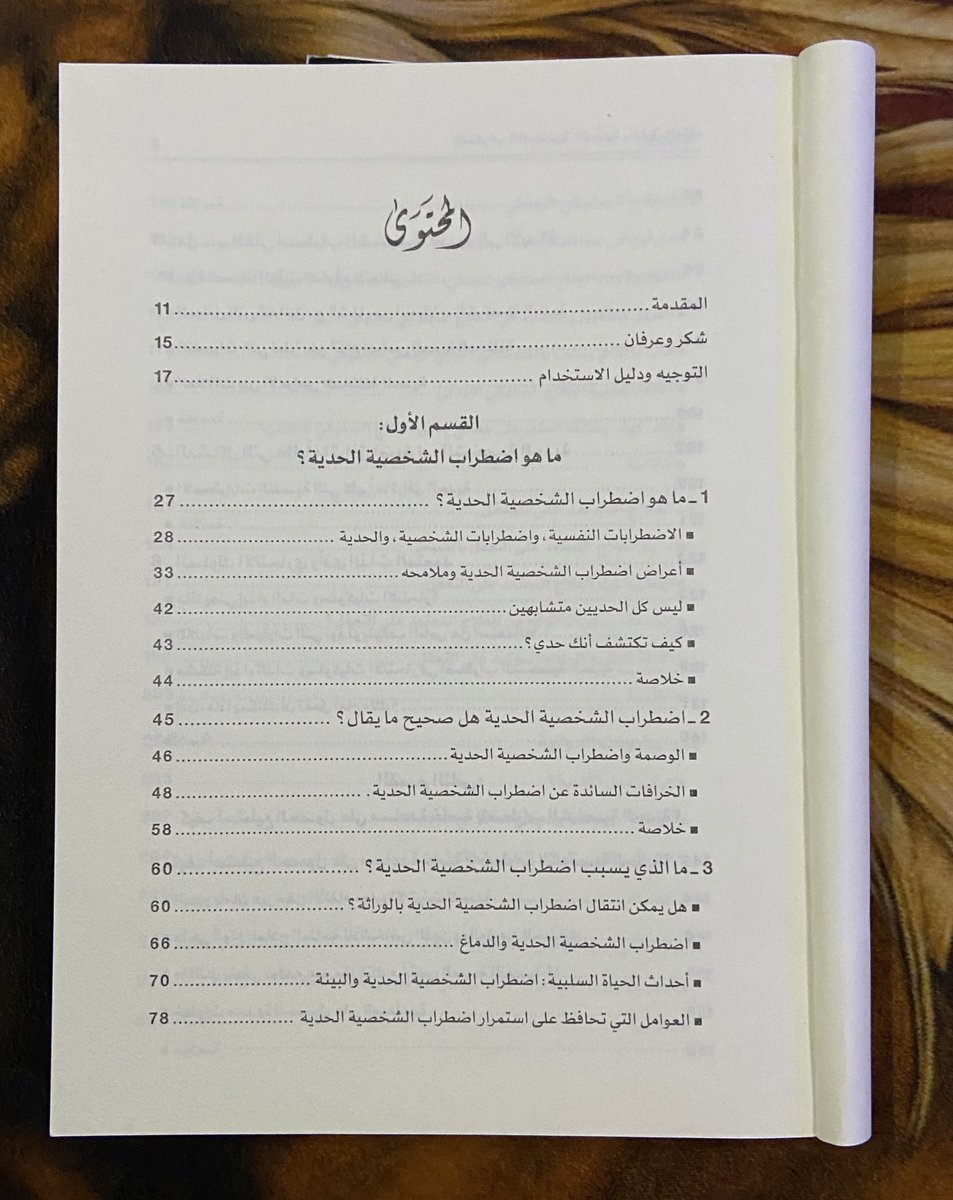 المحتوى
المقدمة ........ 11
شكر وعرفان ........ 15
التوجيه ودليل الاستخدام ........ 17
القسم الأول:
ما هو اضطراب الشخصية الحدية؟
1 ـ ما هو اضطراب الشخصية الحدية؟ ........ 27
■ الاضطرابات النفسية، واضطرابات الشخصية، والحدية ........ 28
■ أعراض اضطراب الشخصية الحدية وملامحه ........ 33
■ ليس كل الحديين متشابهين ........ 42
■ كيف تكتشف أنك حدي؟ ........ 43
■ خلاصة ........ 44
2 ـ اضطراب الشخصية الحدية هل صحيح ما يقال؟ ........ 45
■ الوصمة واضطراب الشخصية الحدية ........ 46
■ الخرافات السائدة عن اضطراب الشخصية الحدية. ........ 48
■ خلاصة ........ 58
3 ـ ما الذي يسبب اضطراب الشخصية الحدية؟ ........ 60
■ هل يمكن انتقال اضطراب الشخصية الحدية بالوراثة؟ ........ 60
■ اضطراب الشخصية الحدية والدماغ ........ 66
■ أحداث الحياة السلبية: اضطراب الشخصية الحدية والبيئة ........ 70
■ العوامل التي تحافظ على استمرار اضطراب الشخصية الحدية ........ 78